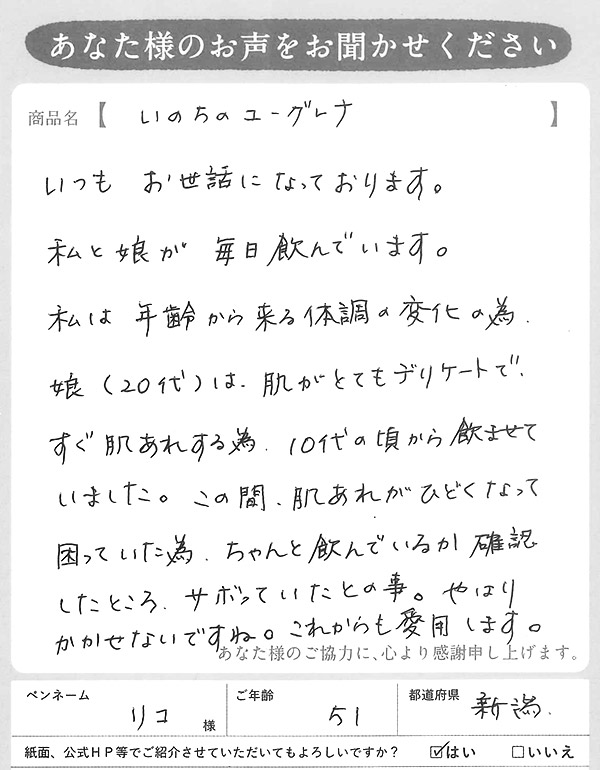 あなた様のお声をお聞かせください
商品名【 いのちのユーグレナ 】
いつも お世話になっております。
私と娘が 毎日飲んでいます。
私は 年齢から来る体調の変化の為、
娘(20代)は、肌がとてもデリケートで、
すぐ肌あれする為、10代の頃から飲ませて
いました。この間、肌あれがひどくなって
困っていた為、ちゃんと飲んでいるか 確認
したところ、サボっていたとの事。やはり
かかせないですね。これからも愛用します。
あなた様のご協力に、心より感謝申し上げます。
ペンネーム リコ 様 ご年齢 51 都道府県 新潟.
紙面、公式HP等でご紹介させていただいてもよろしいですか? ☑はい □いいえ